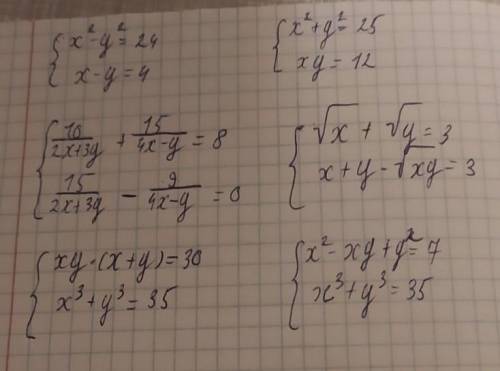 x² - y² = 24
x - y = 4
x² + y² = 25
xy = 12
10/(2x+3y) + 15/(4x-y) = 8
15/(2x+3y) - 9/(4x-y) = 0
√x + √y = 3
x + y - √xy = 3
xy · (x+y) = 30
x³ + y³ = 35
x² - xy + y² = 7
x³ + y³ = 35